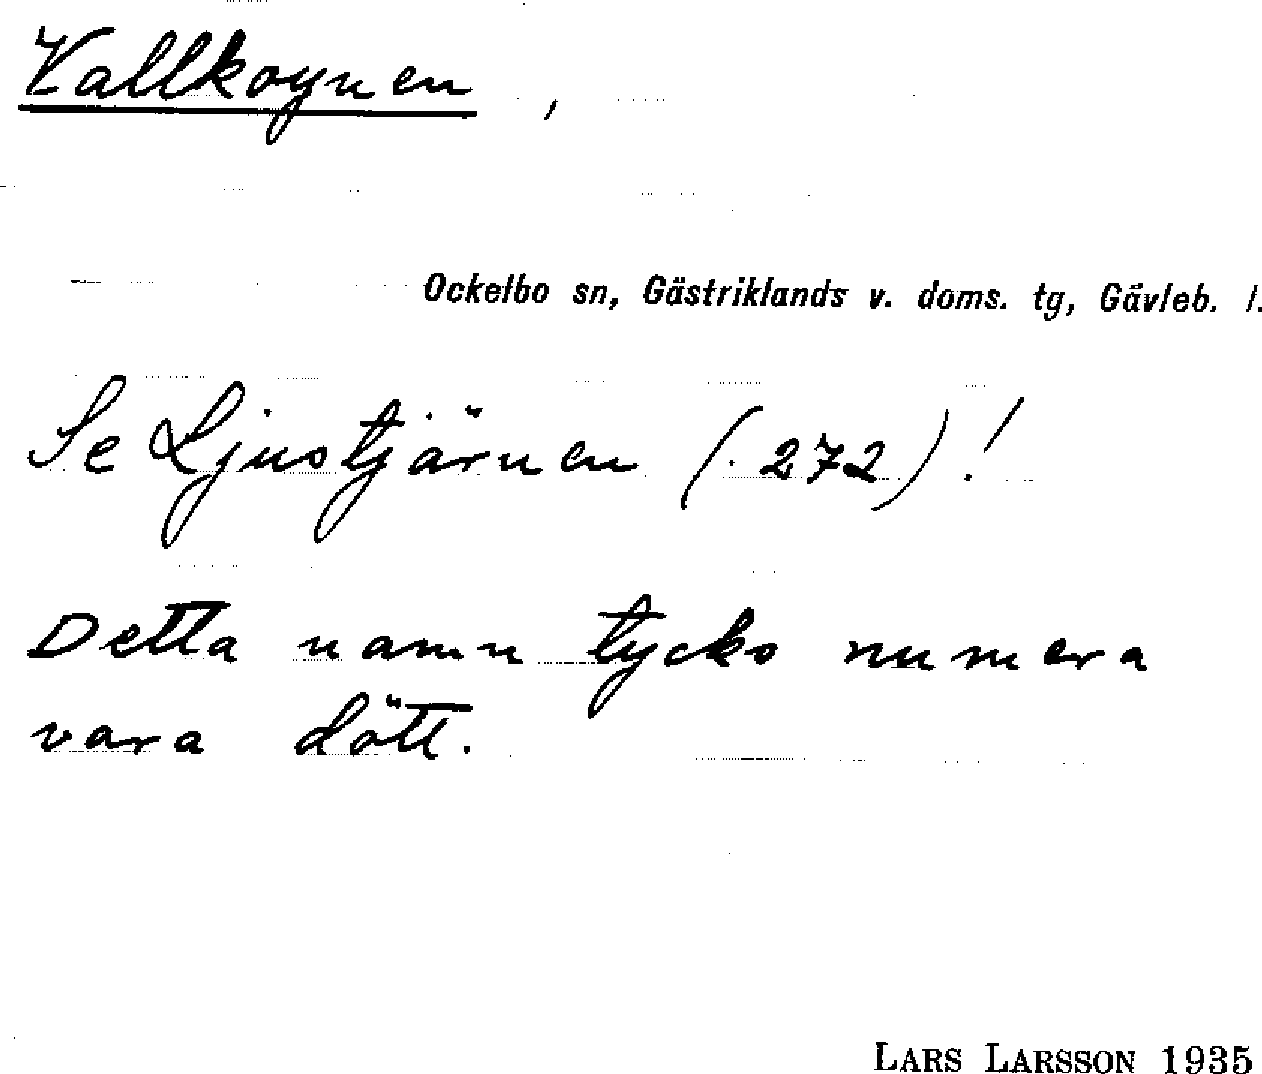 Vallkoynen ,
Ockelbo sn, Gästriklands v. doms. tg, Gävleb. l.
Se Ljustjärnen (272)!
Detta namn tycks numera
vara dött.
LARS LARSSON 1935